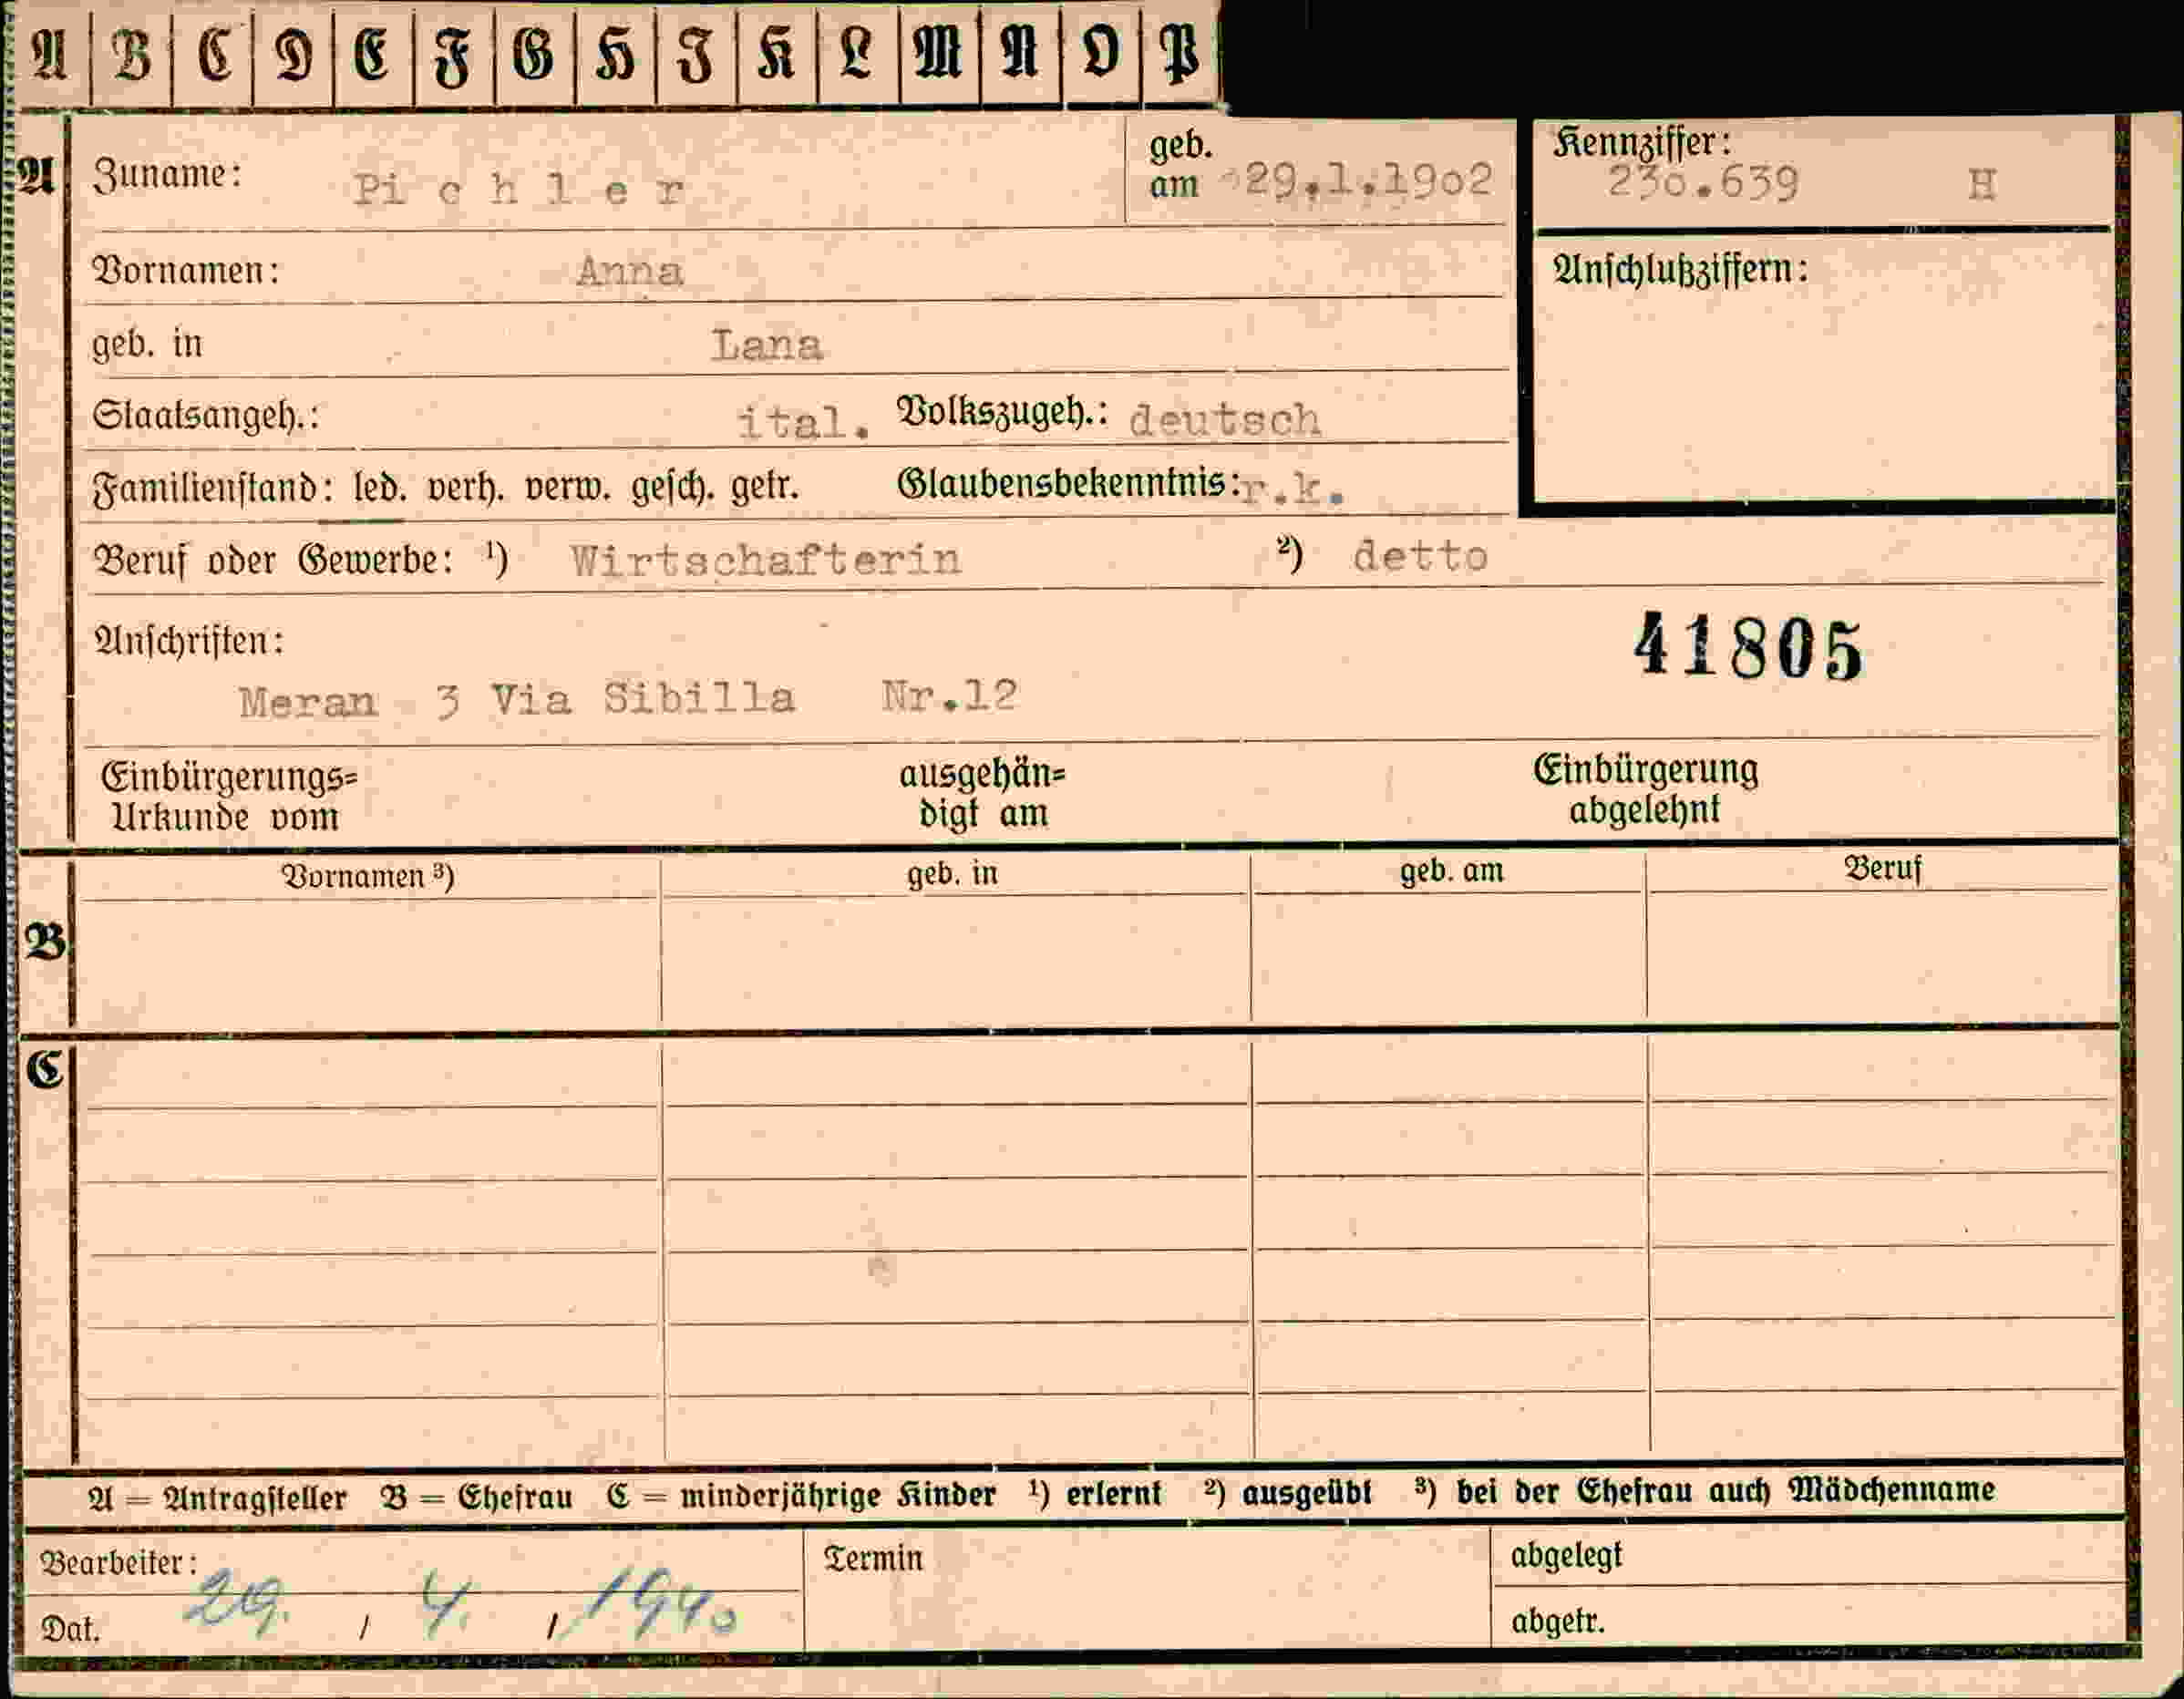 A B C D E F G H I K L M N O P
A Zuname: Pi c h l e r geb. am 29.1.1902 Kennziffer: 230.639 H
Vornamen: Anna Anschlußziffern:
geb. in Lana
Staatsangeh.: ital. Volkszugeh.: deutsch
Familienstand: led. verh. verw. gesch. getr. Glaubensbekenntnis: r.k.
Beruf oder Gewerbe: ¹) Wirtschafterin ²) detto
Anschriften: 41805
Meran 3 Via Sibilla Nr.12
Einbürgerungs= ausgehän= Einbürgerung
Urkunde vom digt am abgelehnt
Vornamen ³) geb. in geb. am Beruf
B
C
A = Antragsteller B = Ehefrau C = minderjährige Kinder ¹) erlernt ²) ausgeübt ³) bei der Ehefrau auch Mädchenname
Bearbeiter: Termin abgelegt
Dat. 29. / 4. / 1940 abgetr.